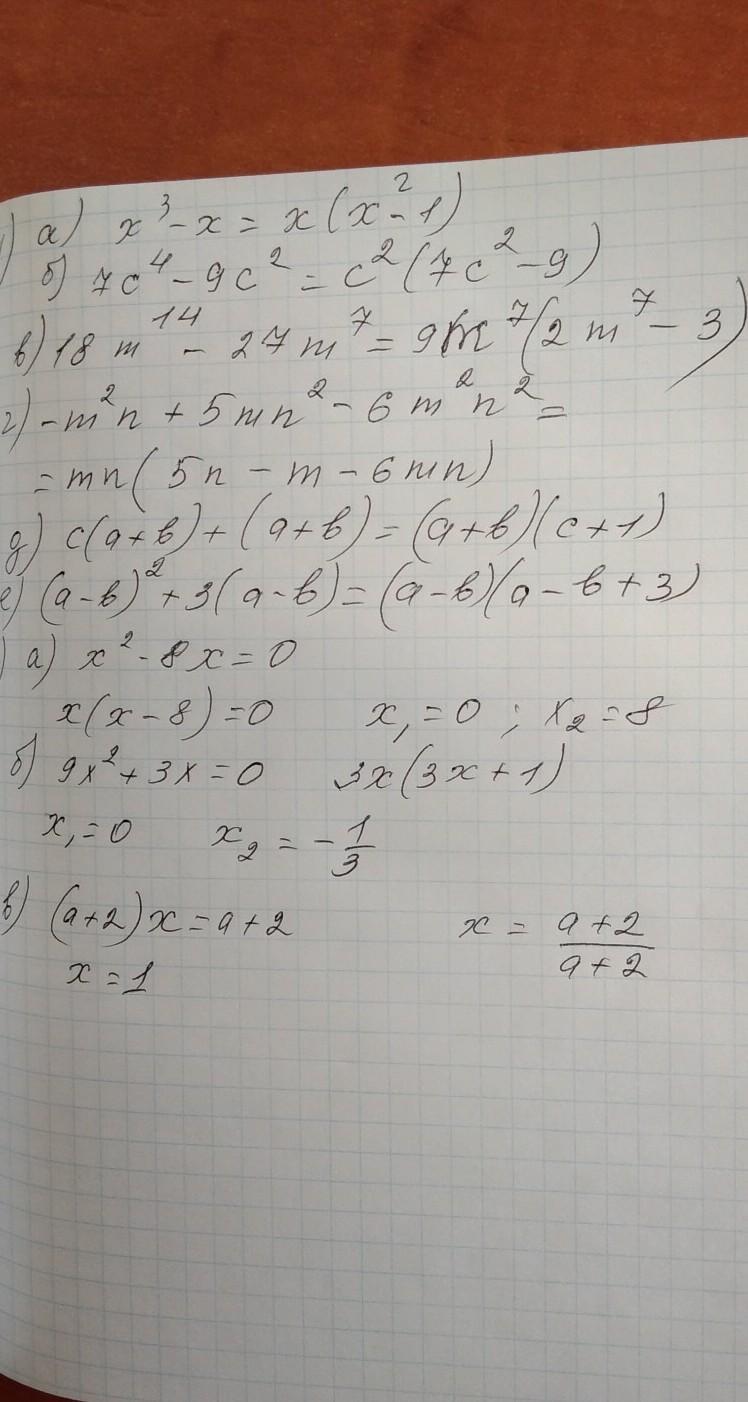 ) а) x³ - x = x(x² - 1)
б) 7c⁴ - 9c² = c²(7c² - 9)
в) 18m¹⁴ - 27m⁷ = 9m⁷(2m⁷ - 3)
г) -m²n + 5mn² - 6m²n² =
= mn(5n - m - 6mn)
д) c(a+b) + (a+b) = (a+b)(c+1)
е) (a-b)² + 3(a-b) = (a-b)(a-b+3)
) а) x² - 8x = 0
x(x-8) = 0 x₁ = 0 ; x₂ = 8
б) 9x² + 3x = 0 3x(3x+1)
x₁ = 0 x₂ = -1/3
в) (a+2)x = a+2 x = (a+2)/(a+2)
x = 1